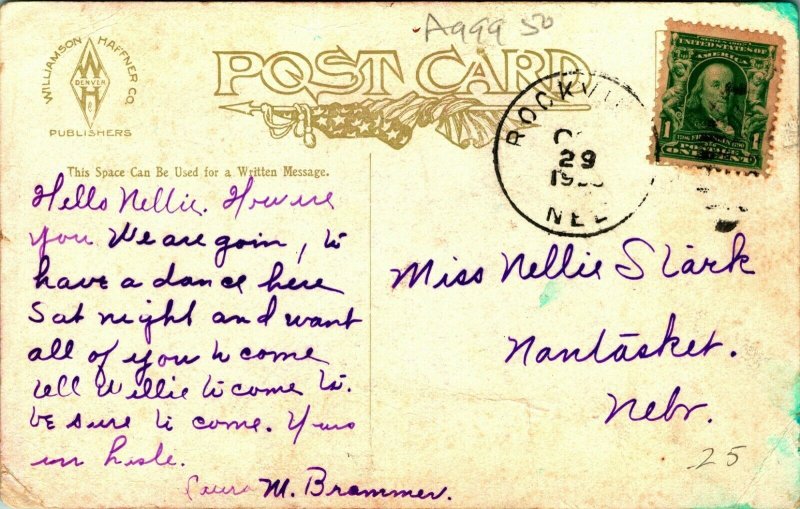 A999 50
WILLIAMSON HAFFNER CO.
WH
DENVER
PUBLISHERS
POST CARD
ROCKVI
29
NEB
UNITED STATES OF
1 1
ONE CENT
This Space Can Be Used for a Written Message.
Hello Nellie. How are
you We are goin, to
have a dance here
Sat night and want
all of you to come
tell Willie to come to.
be sure to come. Yours
in haste.
Laura M. Brammer.
Miss Nellie Stark
Nantasket.
Nebr.
25